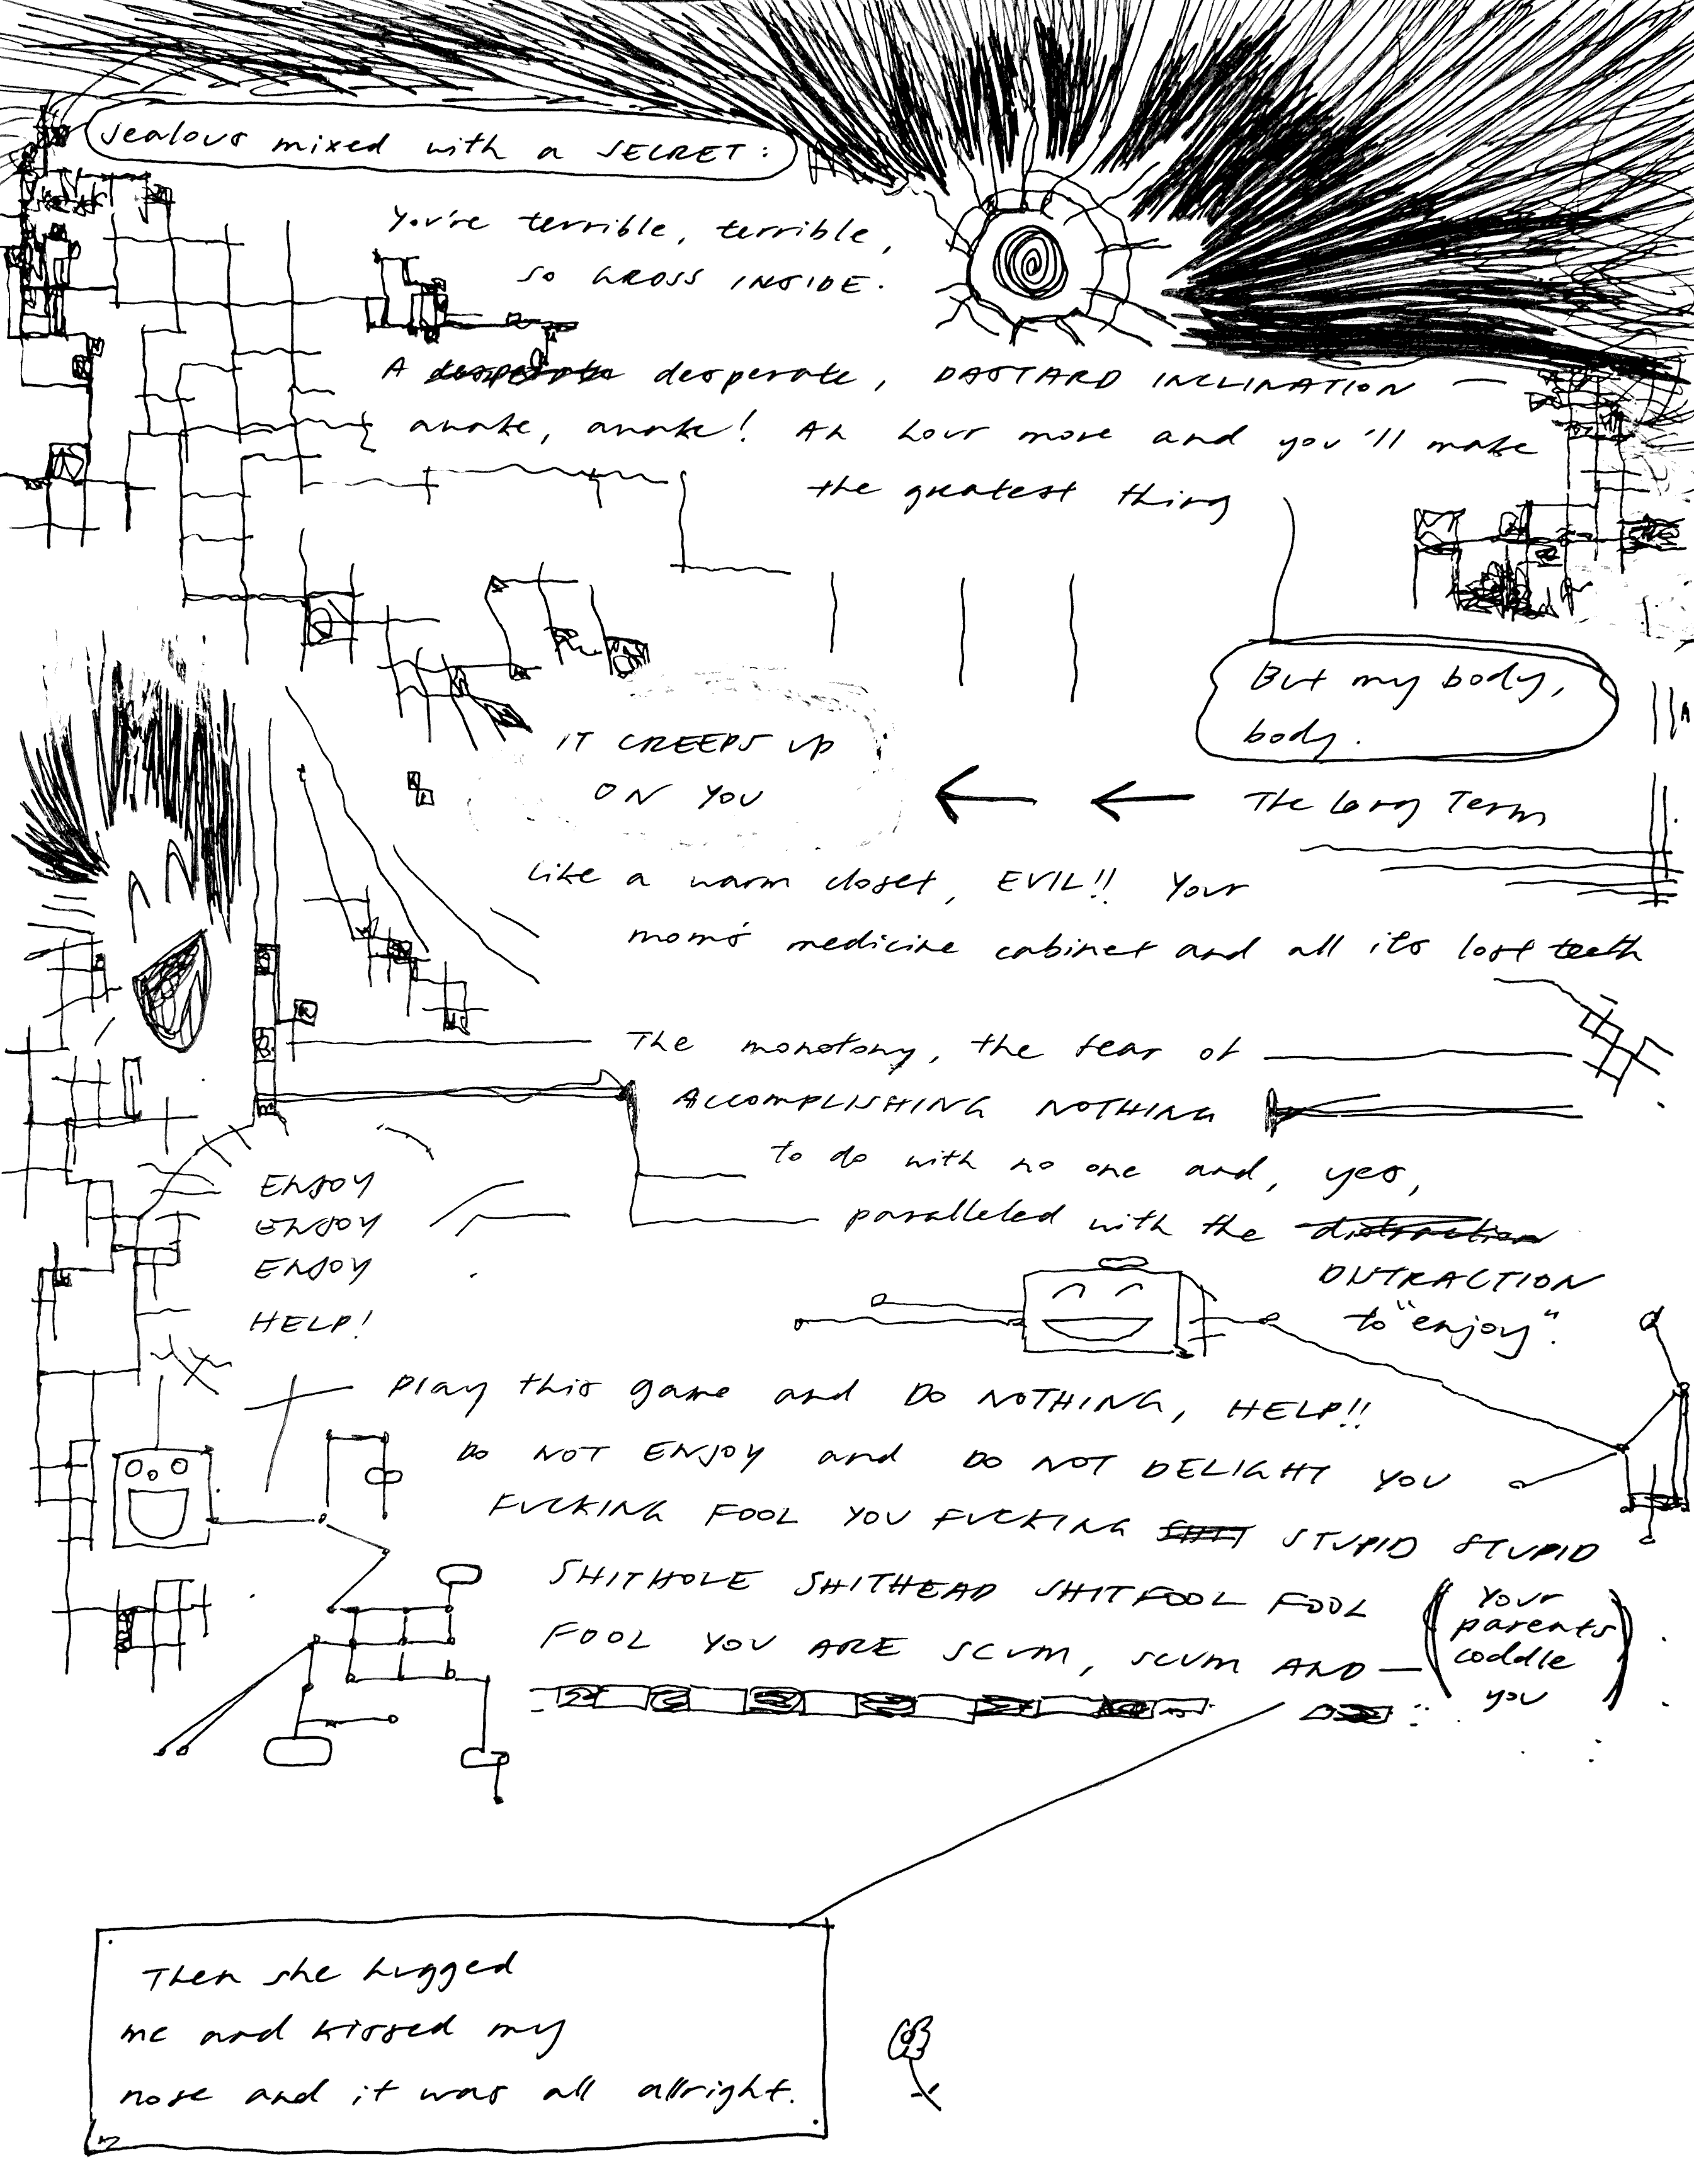 Jealous mixed with a SECRET:
You're terrible, terrible,
SO GROSS INSIDE.
A desperate desperate, DASTARD INCLINATION —
awake, awake! An hour more and you'll make
the greatest thing
But my body,
body.
IT CREEPS UP
ON YOU
The Long Term
Like a warm closet, EVIL!! Your
mom's medicine cabinet and all its lost teeth
The monotony, the fear of
ACCOMPLISHING NOTHING
to do with no one and, yes,
paralleled with the distraction
DISTRACTION
to "enjoy".
ENJOY
ENJOY
ENJOY
HELP!
Play this game and DO NOTHING, HELP!!
DO NOT ENJOY and DO NOT DELIGHT YOU
FUCKING FOOL YOU FUCKING SHIT STUPID STUPID
SHITHOLE SHITHEAD SHITFOOL FOOL
FOOL YOU ARE SCUM, SCUM AND —
(Your
parents
coddle
you)
Then she hugged
me and kissed my
nose and it was all allright.